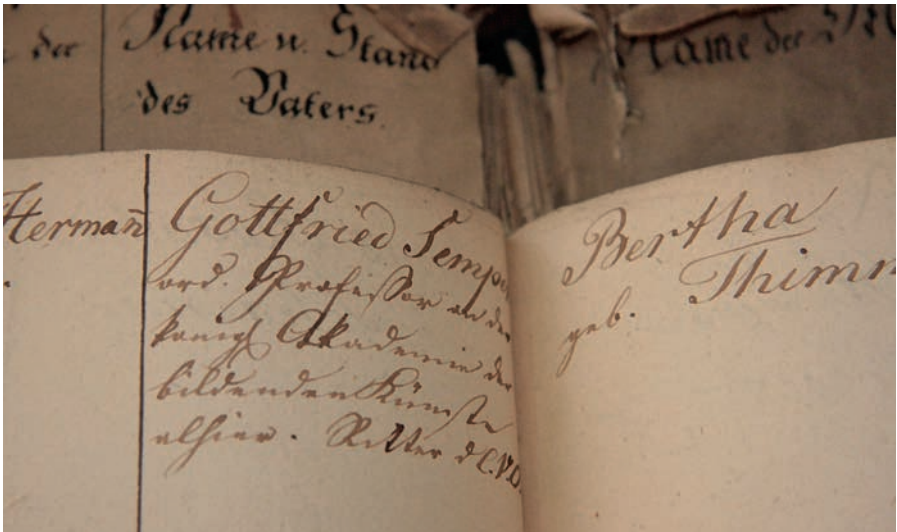 der
Name u. Stand
des Vaters
Name der M
Herman̄
Gottfried Semper
ord. Professor an der
königl Akademie der
bildenden Künste
alhier. Ritter d C.V.O.
Bertha
geb. Thimm